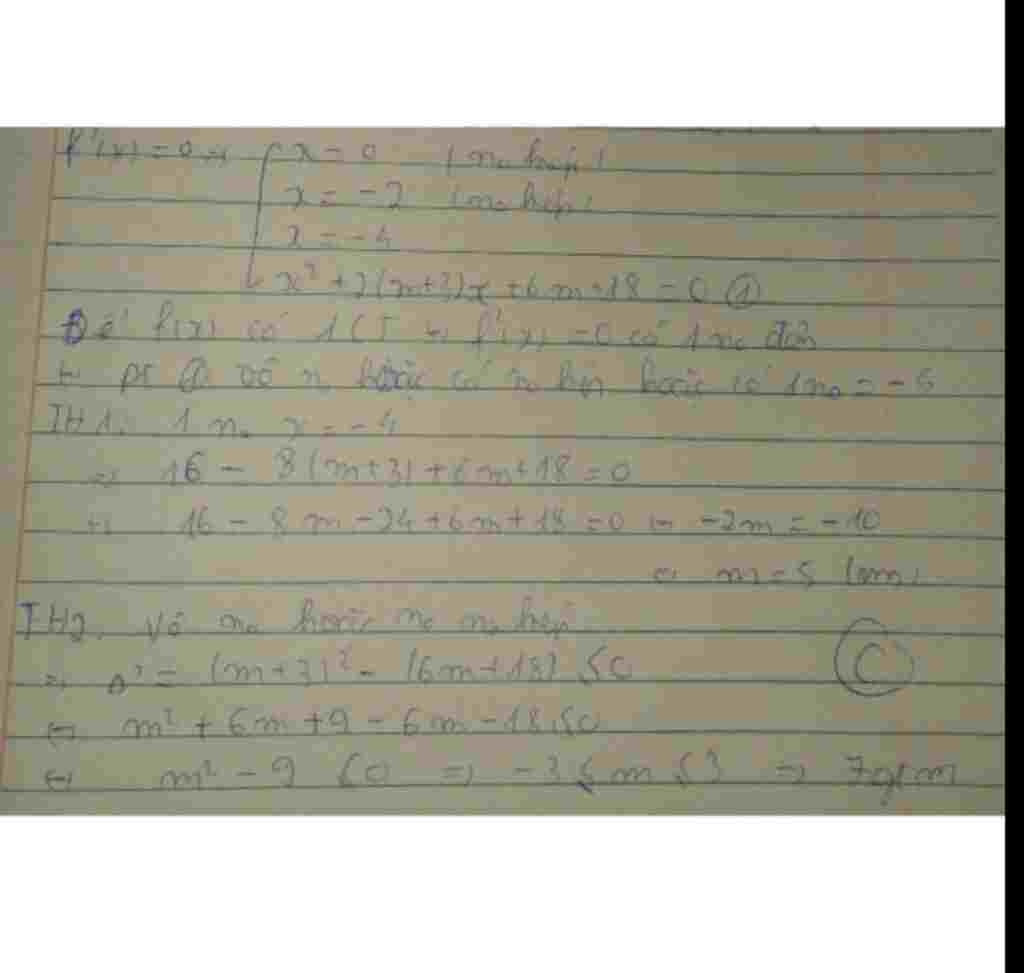 f'(x) = 0 ⇔ [ x = 0 (no kép)
x = -2 (no kép)
x = -4
x² + 2(m+3)x + 6m+18 = 0 ①
Để f(x) có 1 CT ⇔ f'(x) = 0 có 1 no đơn
⇔ pt ① vô n hoặc có no kép hoặc có 1 no = -5
TH1. 1 no x = -4
⇒ 16 - 8(m+3) + 6m+18 = 0
⇔ 16 - 8m - 24 + 6m + 18 = 0 ⇔ -2m = -10
⇔ m = 5 (tm)
TH2. Vô no hoặc no kép
⇒ Δ' = (m+3)² - (6m+18) ≤ 0
⇔ m² + 6m + 9 - 6m - 18 ≤ 0
Ⓒ
⇔ m² - 9 ≤ 0 ⇒ -3 ≤ m ≤ 3 ⇒ 7 gt m